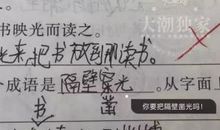 大潮独家
书映光而读之。
来,把书放到那读书。
成语是隔壁家光。从字面
书 凿
你要把隔壁凿光吗!